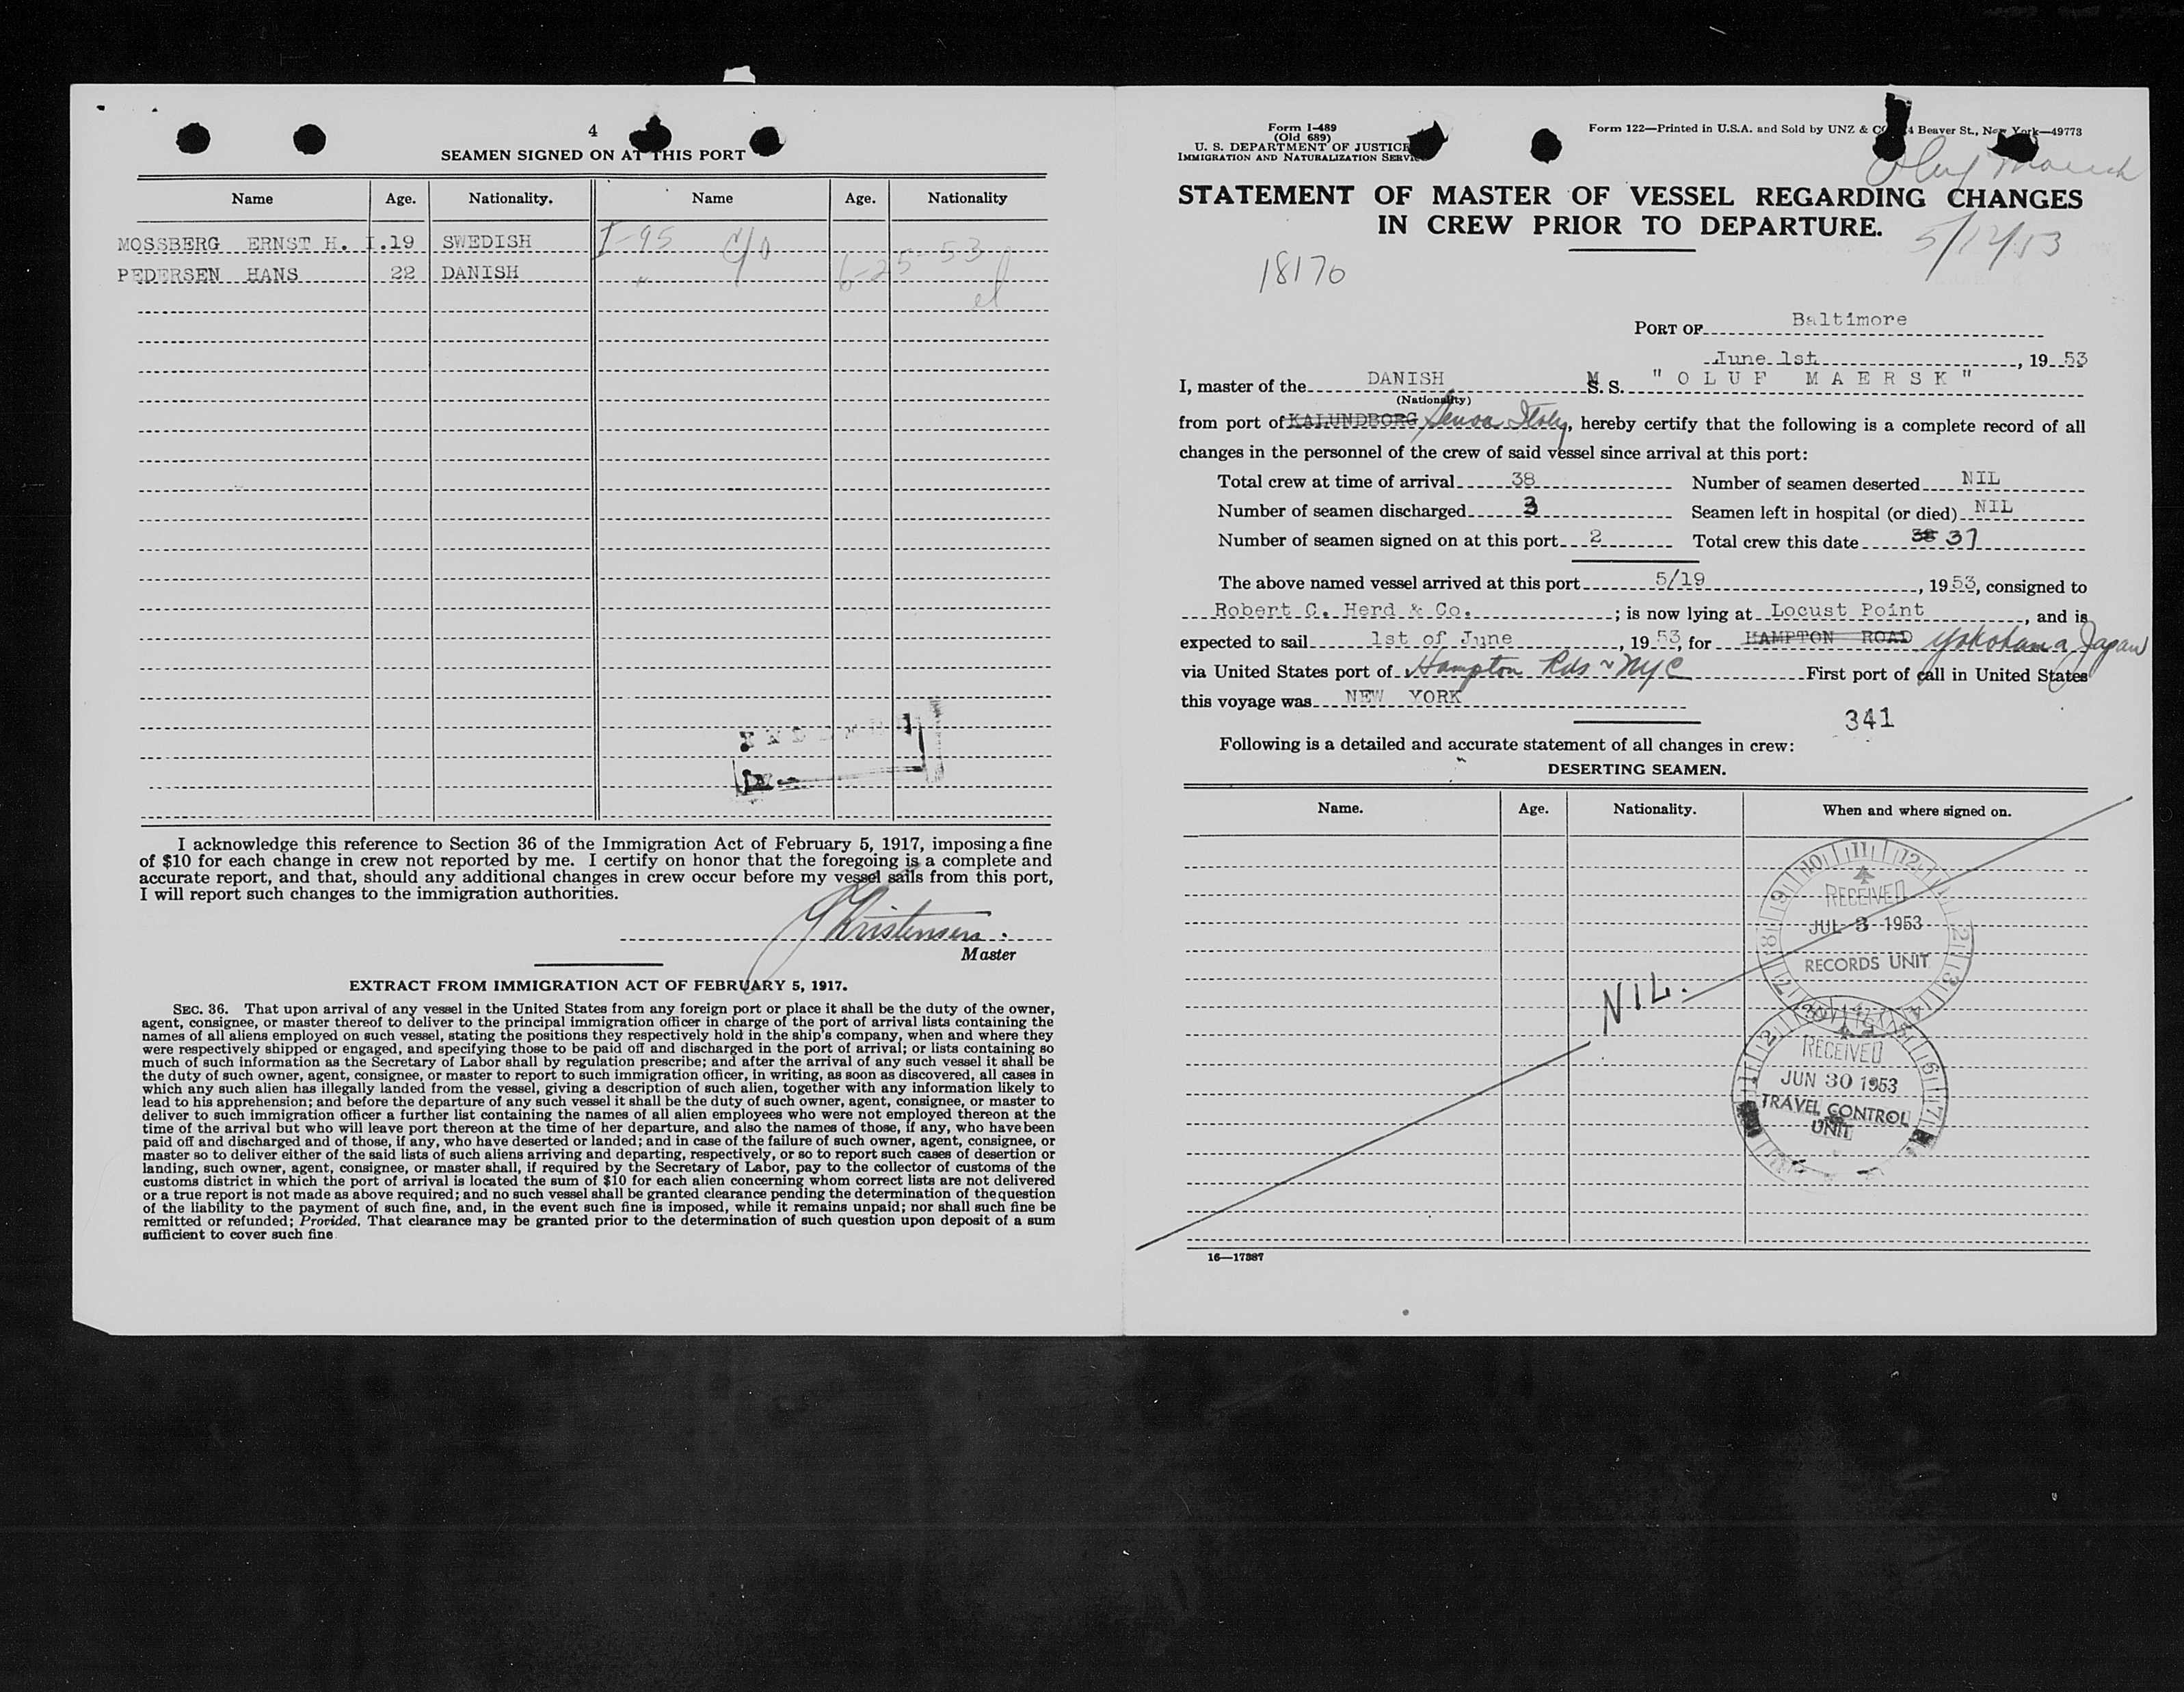 4
SEAMEN SIGNED ON AT THIS PORT
Name Age. Nationality. Name Age. Nationality
MOSSBERG ERNST H. I. 19 SWEDISH I-95 c/o
PEDERSEN HANS 22 DANISH " 6-25-53
el
I acknowledge this reference to Section 36 of the Immigration Act of February 5, 1917, imposing a fine
of $10 for each change in crew not reported by me. I certify on honor that the foregoing is a complete and
accurate report, and that, should any additional changes in crew occur before my vessel sails from this port,
I will report such changes to the immigration authorities.
J Kristensen.
Master
EXTRACT FROM IMMIGRATION ACT OF FEBRUARY 5, 1917.
SEC. 36. That upon arrival of any vessel in the United States from any foreign port or place it shall be the duty of the owner,
agent, consignee, or master thereof to deliver to the principal immigration officer in charge of the port of arrival lists containing the
names of all aliens employed on such vessel, stating the positions they respectively hold in the ship's company, when and where they
were respectively shipped or engaged, and specifying those to be paid off and discharged in the port of arrival; or lists containing so
much of such information as the Secretary of Labor shall by regulation prescribe; and after the arrival of any such vessel it shall be
the duty of such owner, agent, consignee, or master to report to such immigration officer, in writing, as soon as discovered, all cases in
which any such alien has illegally landed from the vessel, giving a description of such alien, together with any information likely to
lead to his apprehension; and before the departure of any such vessel it shall be the duty of such owner, agent, consignee, or master to
deliver to such immigration officer a further list containing the names of all alien employees who were not employed thereon at the
time of the arrival but who will leave port thereon at the time of her departure, and also the names of those, if any, who have been
paid off and discharged and of those, if any, who have deserted or landed; and in case of the failure of such owner, agent, consignee, or
master so to deliver either of the said lists of such aliens arriving and departing, respectively, or so to report such cases of desertion or
landing, such owner, agent, consignee, or master shall, if required by the Secretary of Labor, pay to the collector of customs of the
customs district in which the port of arrival is located the sum of $10 for each alien concerning whom correct lists are not delivered
or a true report is not made as above required; and no such vessel shall be granted clearance pending the determination of the question
of the liability to the payment of such fine, and, in the event such fine is imposed, while it remains unpaid; nor shall such fine be
remitted or refunded; Provided, That clearance may be granted prior to the determination of such question upon deposit of a sum
sufficient to cover such fine
Form I-489
(Old 689)
U. S. DEPARTMENT OF JUSTICE
IMMIGRATION AND NATURALIZATION SERVICE
Form 122—Printed in U.S.A. and Sold by UNZ & CO. 4 Beaver St., New York—49773
Oluf Maersk
STATEMENT OF MASTER OF VESSEL REGARDING CHANGES
IN CREW PRIOR TO DEPARTURE.
5/12/53
18170
PORT OF Baltimore
June 1st, 19 53
I, master of the DANISH M S. S. "OLUF MAERSK"
(Nationality)
from port of KALUNDBORG Genoa Italy, hereby certify that the following is a complete record of all
changes in the personnel of the crew of said vessel since arrival at this port:
Total crew at time of arrival 38 Number of seamen deserted NIL
Number of seamen discharged 3 Seamen left in hospital (or died) NIL
Number of seamen signed on at this port 2 Total crew this date 38 37
The above named vessel arrived at this port 5/19, 1953, consigned to
Robert C. Herd & Co.; is now lying at Locust Point, and is
expected to sail 1st of June, 19 53, for HAMPTON ROAD Yokohama Japan
via United States port of Hampton Rds ~ NYC First port of call in United States
this voyage was NEW YORK
341
Following is a detailed and accurate statement of all changes in crew:
DESERTING SEAMEN.
Name. Age. Nationality. When and where signed on.
RECEIVED
JUL 3 1953
RECORDS UNIT
NIL.
RECEIVED
JUN 30 1953
TRAVEL CONTROL
UNIT
16—17387